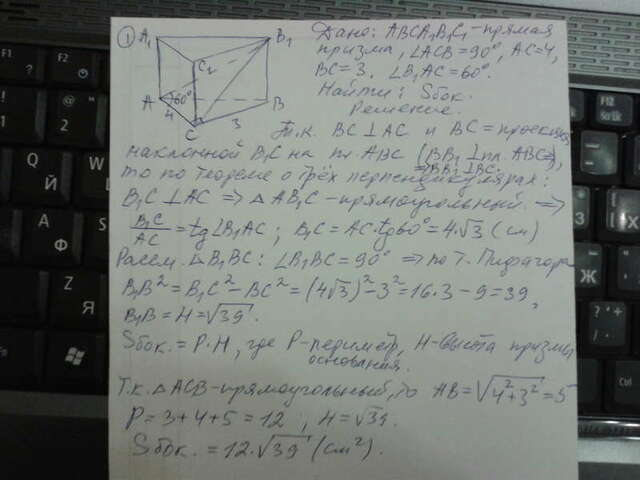 ① Дано: ABCA₁B₁C₁ - прямая
призма, ∠ACB = 90°, AC=4,
BC=3, ∠B₁AC=60°.
Найти: Sбок.
Решение.
A₁ B₁ C₁
A 60° B
4 C 3
Т.к. BC⊥AC и BC = проекция
наклонной B₁C на пл. ABC (BB₁⊥пл. ABC⇒
⇒BB₁⊥BC),
то по теореме о трёх перпендикулярах:
B₁C⊥AC ⇒ △AB₁C - прямоугольный. ⇒
B₁C/AC = tg∠B₁AC; B₁C = AC·tg60° = 4·√3 (см)
Рассм. △B₁BC: ∠B₁BC = 90° ⇒ по т. Пифагора
B₁B² = B₁C² - BC² = (4√3)² - 3² = 16·3 - 9 = 39,
B₁B = H = √39.
Sбок. = P·H, где P - периметр, H - высота призмы
основания.
Т.к. △ACB - прямоугольный, то AB = √4²+3² = 5
P = 3+4+5 = 12, H = √39.
Sбок. = 12·√39 (см²).